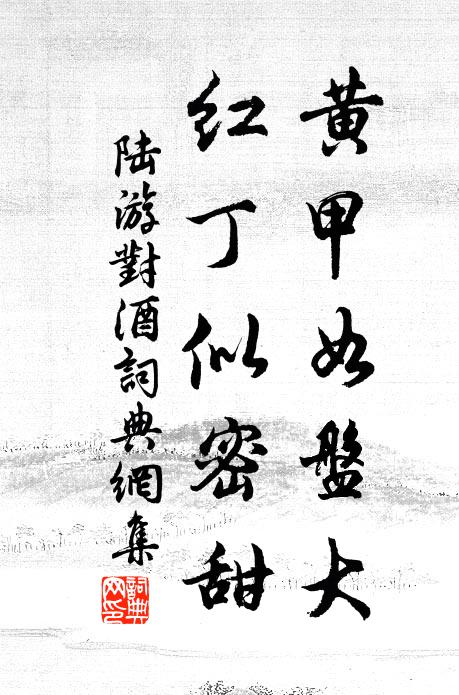 黃甲如盤大
紅丁似密甜
陸游對酒詞典網集
詞典网印